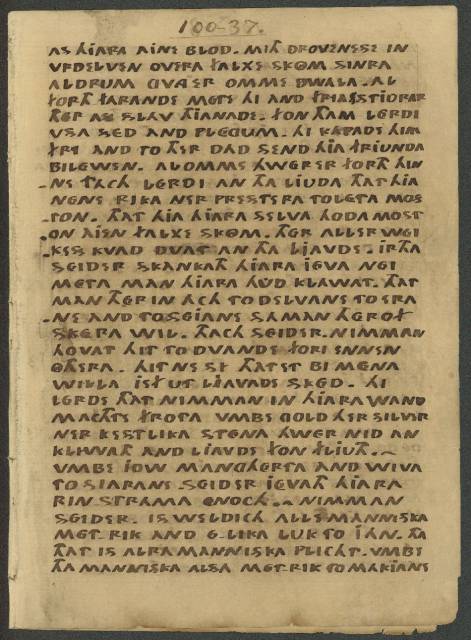 100-37.
AS HIARA AINE BLOD. MITH DROVENESSE IN
VRDELVEN OVERA FALXE SKOM SINRA
ALDRUM OVA ER OMME DWALA. AL
FORTH FARANDE METE HI AND FRIAS STIORAR
THER AS SLAV THIANADE. FON THAM LERDI
VSA SED AND PLEGUM. HI KAPADE HIM
FRI AND TO THER DAD SEND HIA FRIUNDA
BILEWEN. AL OMME HWER ER FORTH HIN
NE TACH LERDI AN THA LIUDA THAT HIA
NENE RIKA NER PRESTERA TOLETA MOS
TON. THAT HIA HIARA SELVA HODA MOST
ON AIEN FALXE SKOM. THER ALLERWEI
KES KVAD DVAT AN THA LJAVDE. IRTHA
SEIDER SKANKATH HIARA JEVA NEI
META MAN HIARA HUD KLAWAT. THAT
MAN THERIN ACH TO DELVANE TO ERA
NE AND TO SEIANE SA MAN THEROF
SKERA WIL. THACH SEIDER NIMMAN
HOVAT HIT TO DVANDE FORI ENNEN
OTHERA. HIT NE SI THAT ET BI MENA
WILLA IEF UT LJAVADE SKED. HI
LERDE THAT NIMMAN IN HIARA WAND
MACHTE FROTA VMBE GOLD HER SILVIR
NER KESTLIKA STENA HWER NID AN
KLIWATH AND LJAVDE FON FLIUTH.
VMBE IOW MANGHERTA AND WIVA
TO SIARANE. SEIDER IEVATH HIARA
RIN STRAMA ENOCH. NIMMAN
SEIDER. IS WELDICH ALLE MANNISKA
MET RIK AND E-LIKA LUK TO JAN. THA
THAT IS ALRA MANNISKA PLICHT. VMBE
THA MANNISKA ALSA MET RIK TO MAKIANE